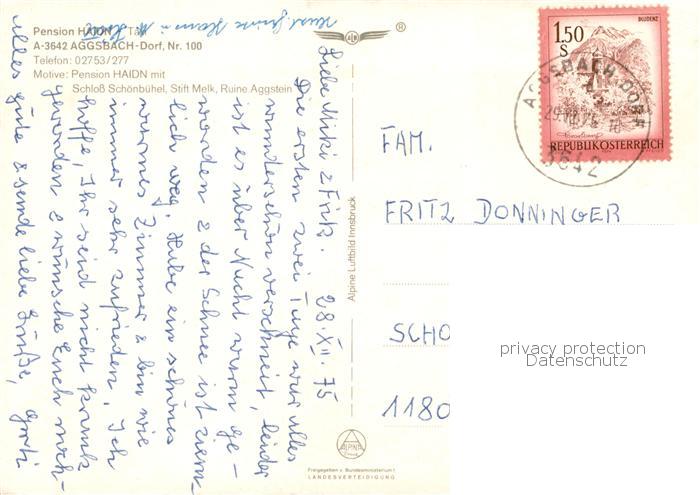 Pension HAIDN Tal
A-3642 AGGSBACH-Dorf, Nr. 100
Telefon: 02753/277
Motive: Pension HAIDN mit
Schloß Schönbühel, Stift Melk, Ruine Aggstein
Liebe Mitzi & Fritz. 28.XII.75
Die ersten zwei Tage war alles
wunderschön verschneit, leider
ist es über Nacht warm ge-
worden & der Schnee ist ziem-
lich weg. Habe ein schönes
warmes Zimmer & bin wie
immer sehr zufrieden. Ich
hoffe, Ihr seid nicht krank
geworden & wünsche Euch noch-
alles gute & sende liebe Grüße,
Alpine Luftbild Innsbruck
®
BLUDENZ
1.50
S
REPUBLIK ÖSTERREICH
AGGSBACH-DORF
3642
FAM.
FRITZ DONNINGER
SCHO
1180
privacy protection
Datenschutz
ALPINE
Freigegeben v. Bundesministerium f.
LANDESVERTEIDIGUNG